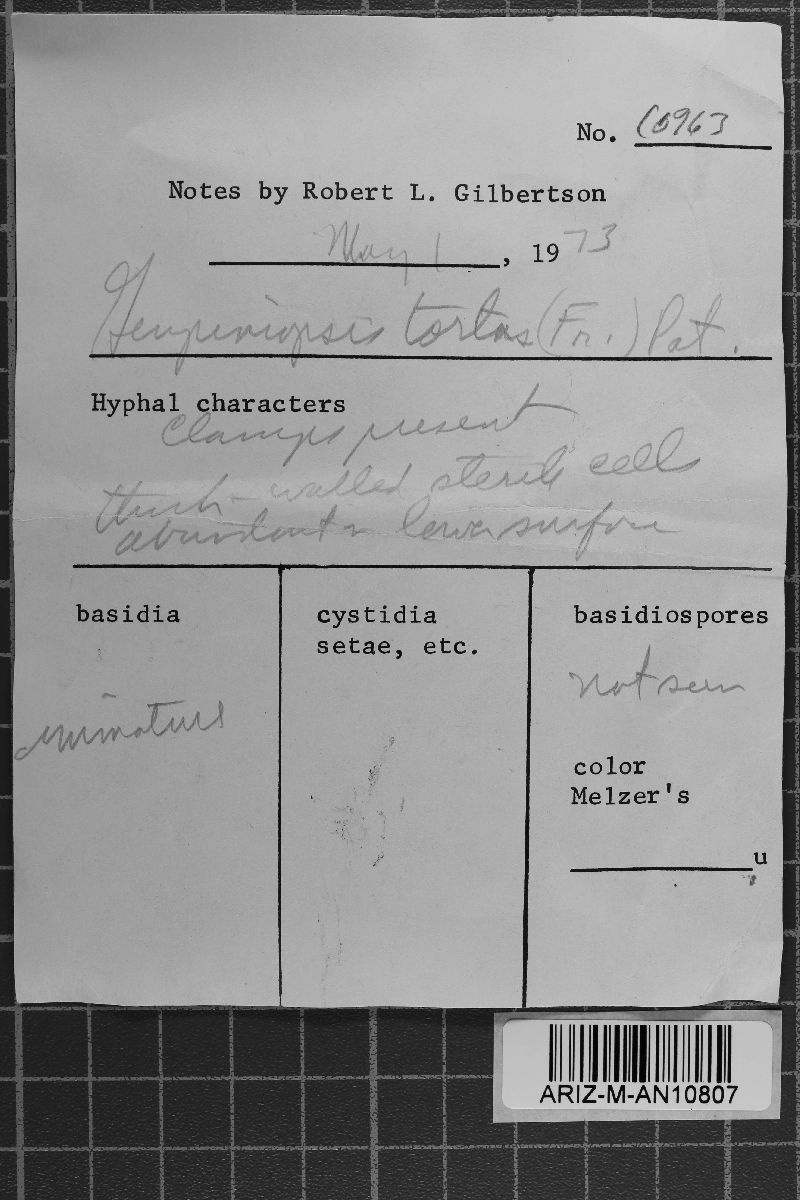 No. 10963
Notes by Robert L. Gilbertson
May 1, 1973
Femsjoniopsis tortus (Fr.) Pat.
Hyphal characters
Clamps present
thick-walled sterile cells
abundant on lower surface
basidia
immature
cystidia
setae, etc.
basidiospores
not seen
color
Melzer's
u
ARIZ-M-AN10807